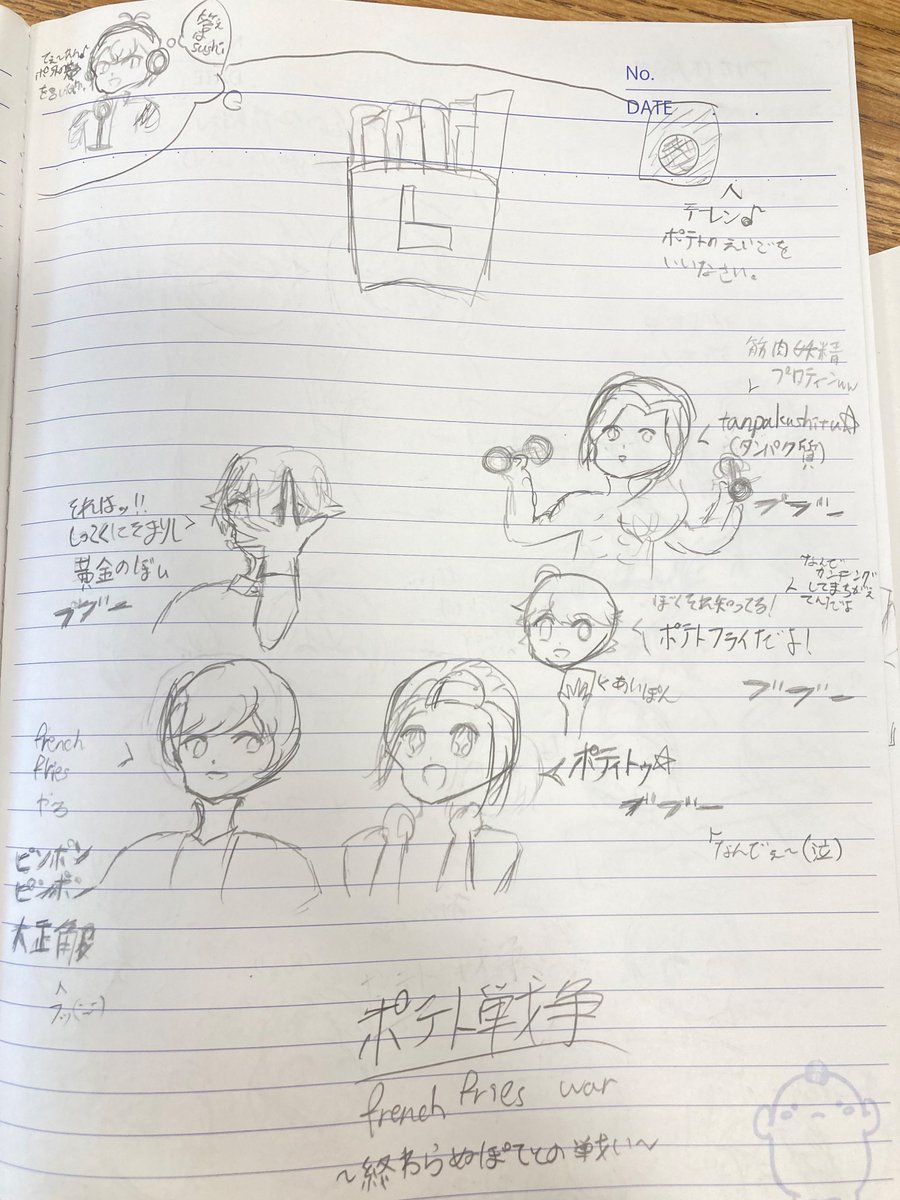 答え
は
sushi
No.
DATE
テーレン♪
ポテトのえいごを
いいなさい。
L
筋肉妖精
プロティンww
tanpakushitu☆
(タンパク質)
ブブー
それはッ!!
しっこくにそまりし
黄金のぼぃ
ブブー
なんで
カンニング
してまちがえ
てんだよ
ぼくそれ知ってる!
ポテトフライだよ!
あいぽん
ブブー
french
fries
やろ
ポティトゥ☆
ブブー
なんでぇ~(泣)
ピンポン
ピンポン
大正解
ポテト戦争
french fries war
~終わらぬぽてとの戦い~